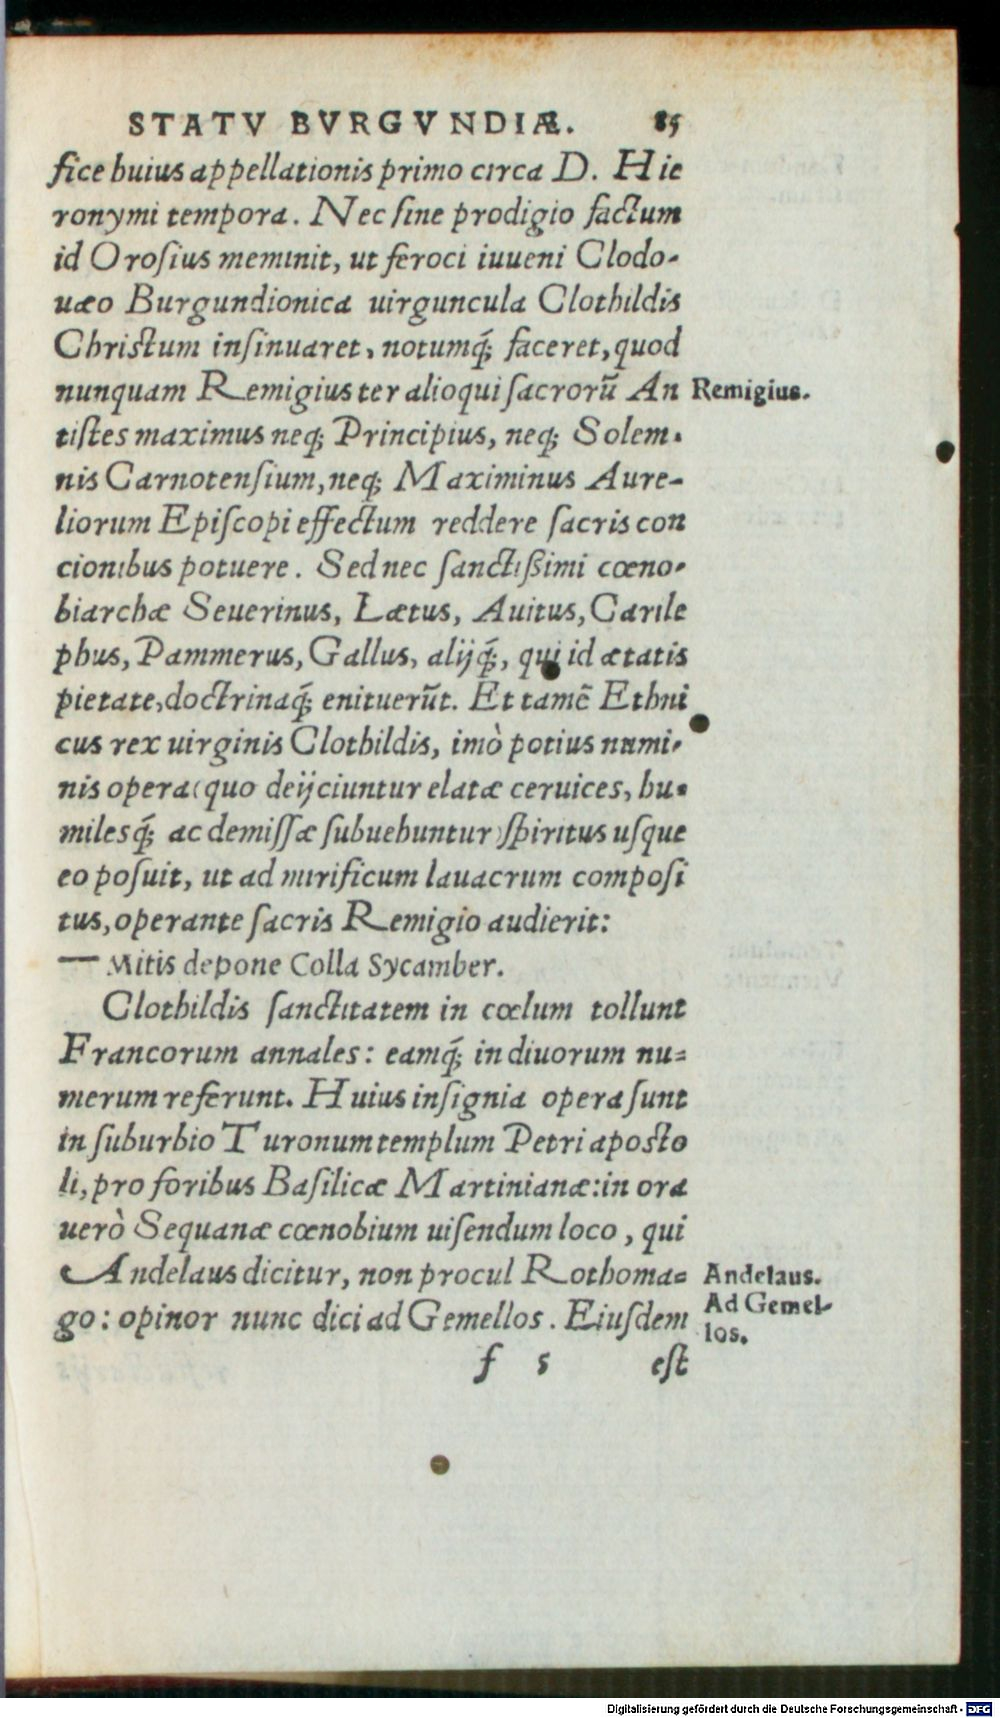 STATV BVRGVNDIÆ. 85
fice huius appellationis primo circa D. Hie
ronymi tempora. Nec ſine prodigio factum
id Oroſius meminit, ut feroci iuueni Clodo-
uæo Burgundionica uirguncula Clothildis
Chriſtum inſinuaret, notumq́; faceret, quod
nunquam Remigius ter alioqui ſacrorū An
Remigius.
tiſtes maximus neq; Principius, neq; Solem-
nis Carnotenſium, neq; Maximinus Aure-
liorum Epiſcopi effectum reddere ſacris con
cionibus potuere. Sed nec ſanctißimi cœno-
biarchæ Seuerinus, Lætus, Auitus, Carile
phus, Pammerus, Gallus, alijq́;, qui id ætatis
pietate, doctrinaq́; enituerūt. Et tamē Ethni
cus rex uirginis Clothildis, imò potius numi-
nis opera (quo deijciuntur elatæ ceruices, hu-
milesq́; ac demiſſæ ſubuehuntur) ſpiritus uſque
eo poſuit, ut ad mirificum lauacrum compoſi
tus, operante ſacris Remigio audierit:
— Mitis depone Colla Sycamber.
Clothildis ſanctitatem in cœlum tollunt
Francorum annales: eamq́; in diuorum nu-
merum referunt. Huius inſignia opera ſunt
in ſuburbio Turonum templum Petri apoſto
li, pro foribus Baſilicæ Martinianæ: in ora
uerò Sequanæ cœnobium uiſendum loco, qui
Andelaus dicitur, non procul Rothoma-
Andelaus.
go: opinor nunc dici ad Gemellos. Eiuſdem
Ad Gemel-
los.
f 5 eſt
Digitalisierung gefördert durch die Deutsche Forschungsgemeinschaft - DFG